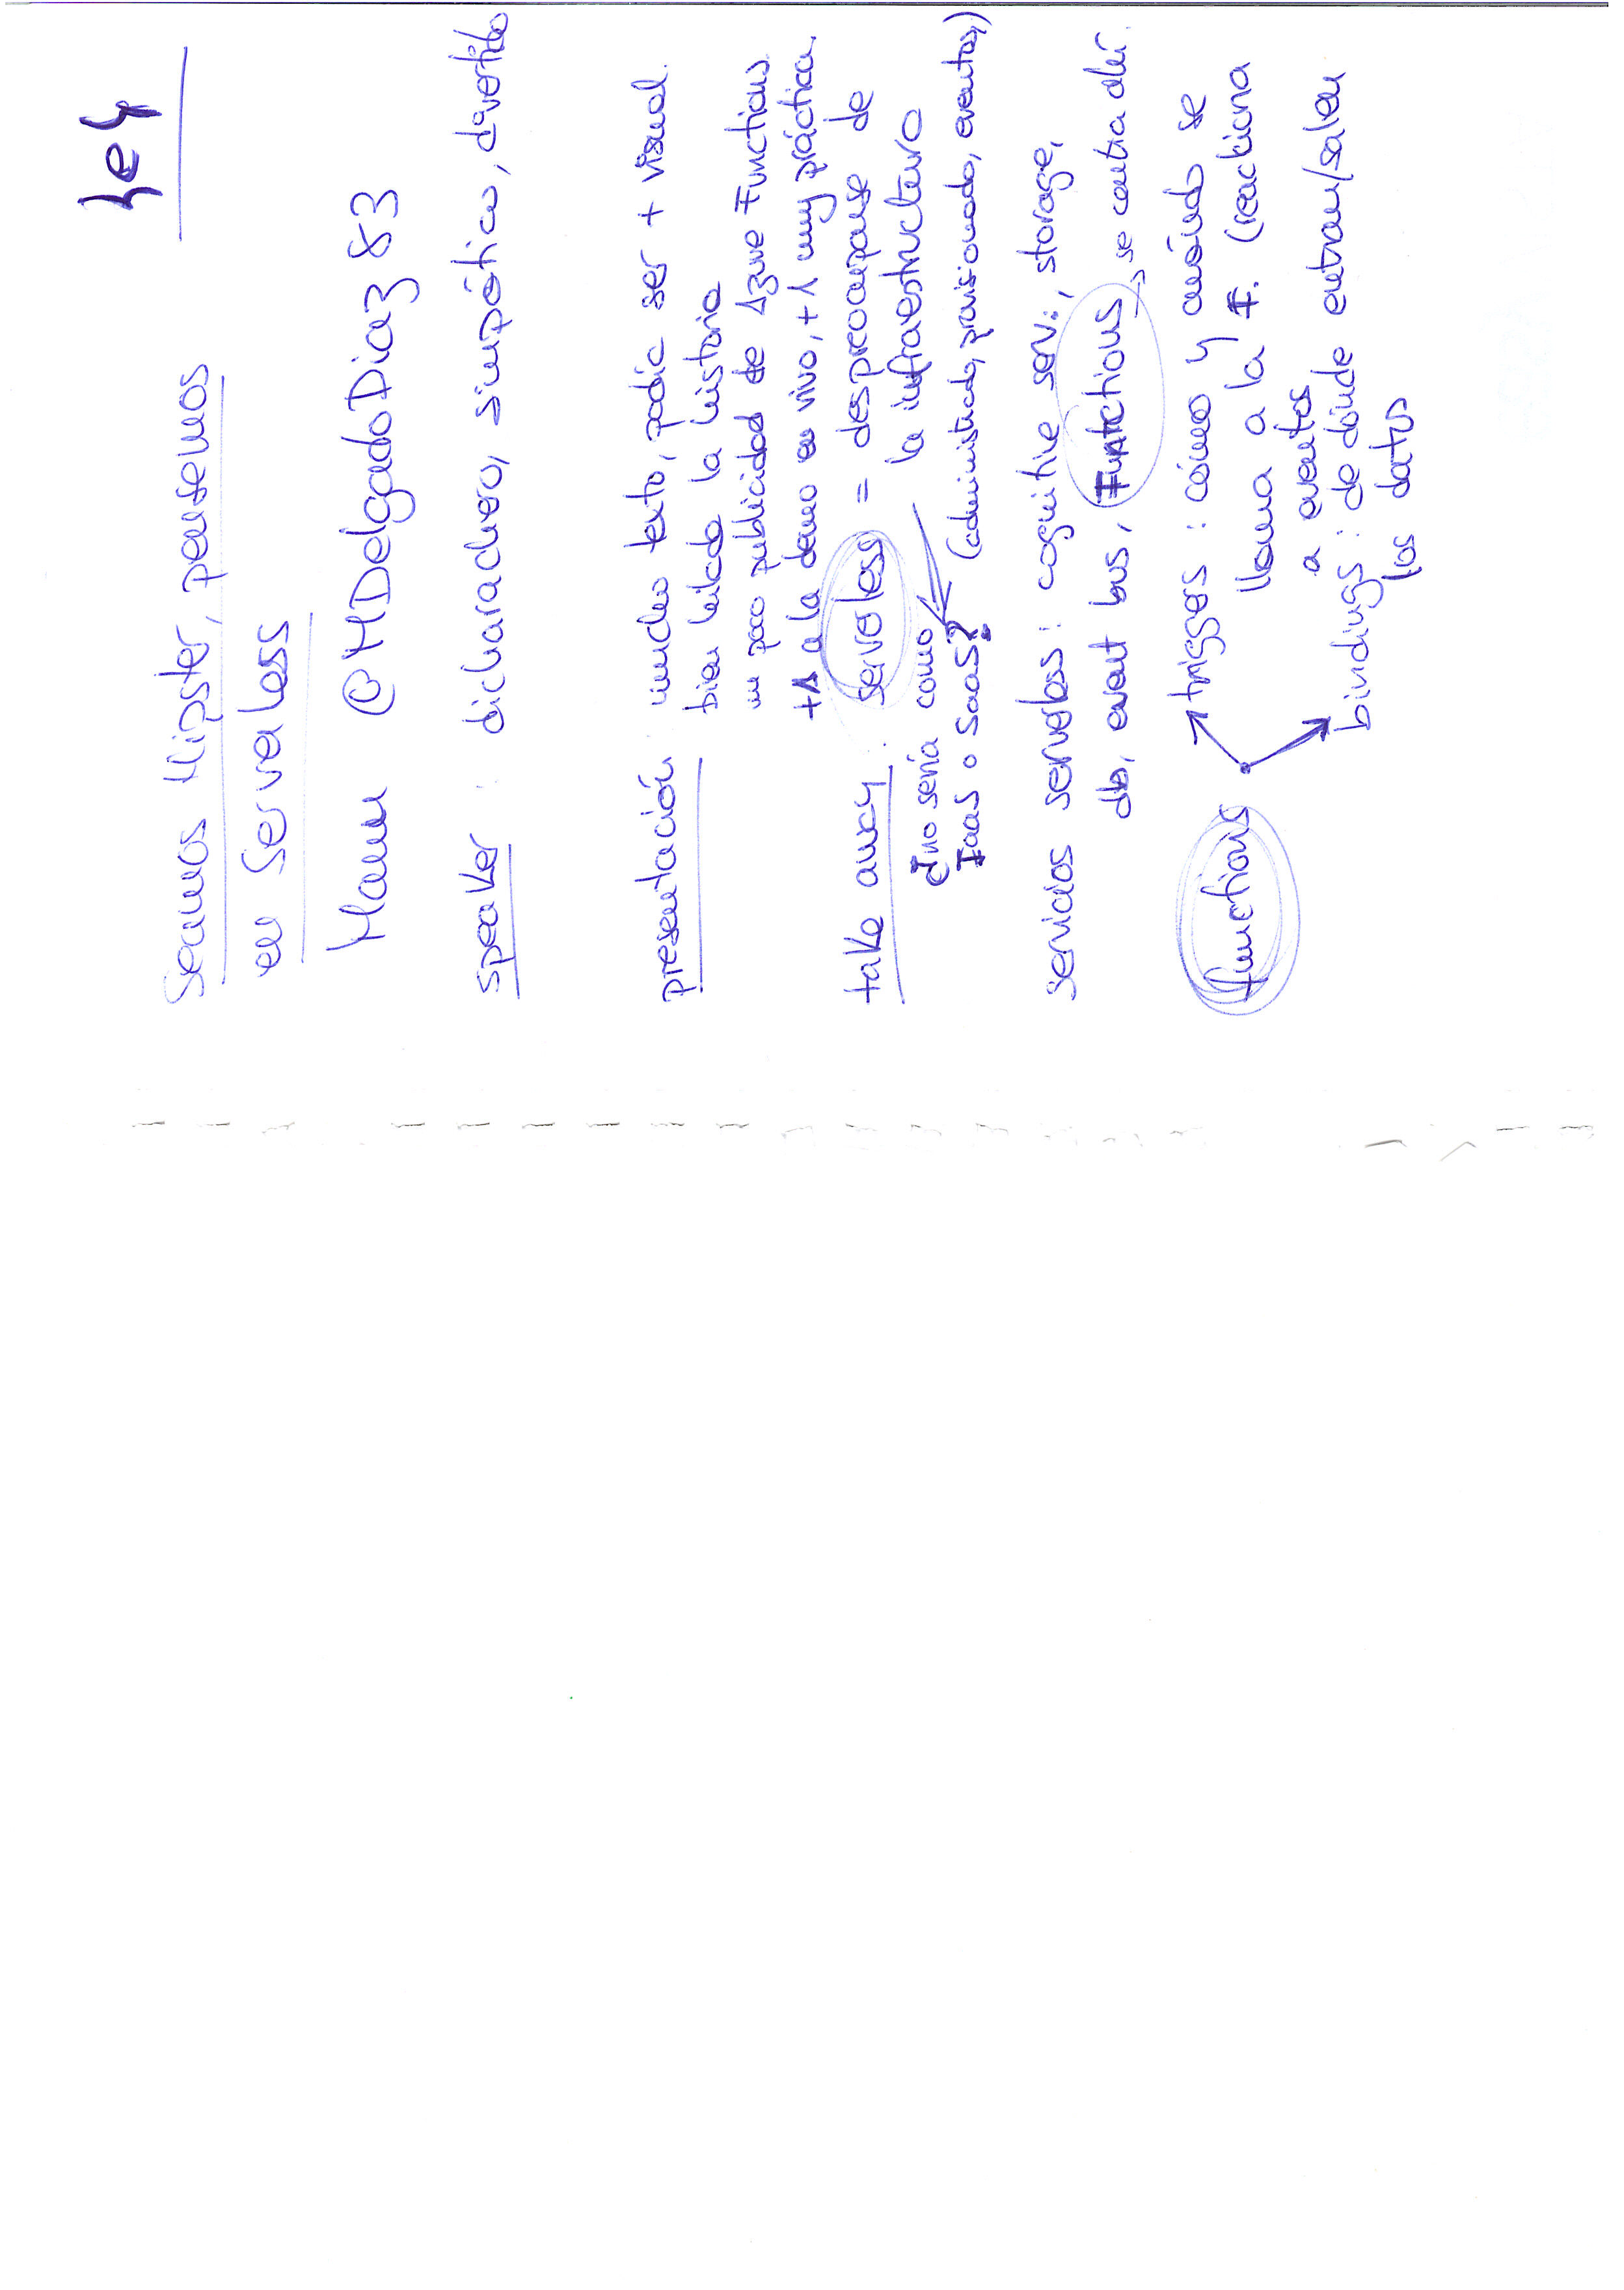 JeY
Seamos Hipster, pensemos
en Serverless
Manu @MDelgadoDiaz83
speaker : dicharachero, simpático, divertido
presentación : mucho texto, podía ser + visual.
bien hilada la historia
un poco publicidad de Azure Functions
+1 a la demo en vivo, +1 muy práctica.
take away : serverless = despreocuparse de
la infraestructura
¿no sería como
IaaS o SaaS? (administrado, provisionado, eventos,)
servicios serverless : cognitive serv., storage,
db, event bus, Functions → se centra ahí.
functions
triggers : cómo y cuándo se
llama a la F. (reacciona
a eventos
bindings : de dónde entran/salen
los datos